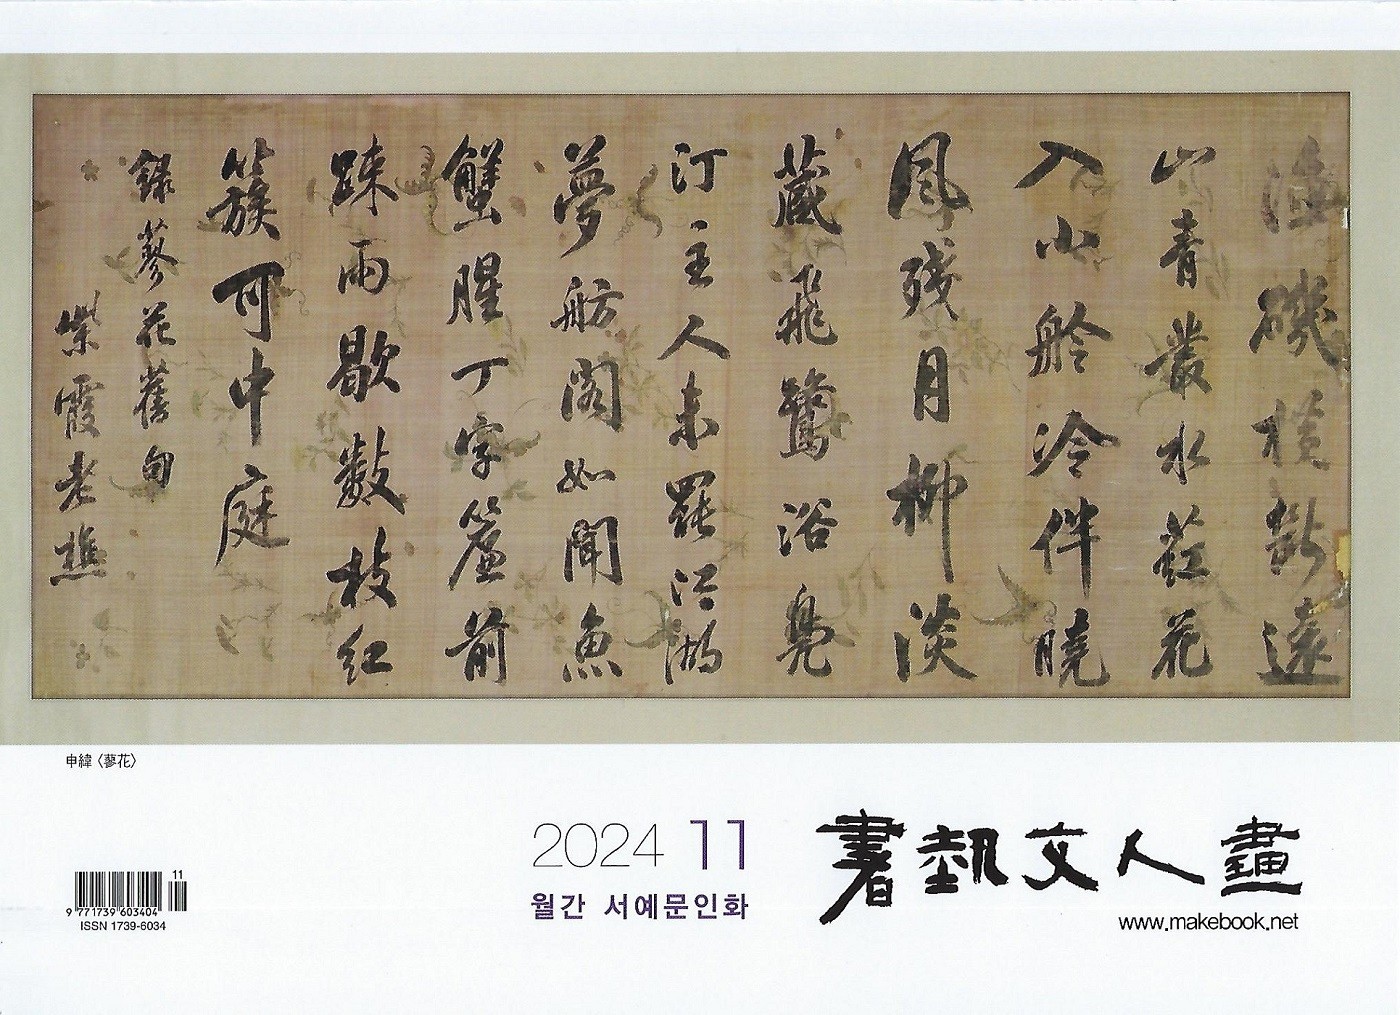 漁磯橫斷遠
山青叢水葒花
入小舲冷伴曉
風殘月柳淡
藏飛鷺浴鳧
汀主人未罷江湖
夢舫閣如聞魚
蟹腥丁字簾前
踈雨歇數枝紅
簇可中庭
錄蓼花舊句
紫霞老樵
申緯〈蓼花〉
2024 11
월간 서예문인화
書藝文人畵
www.makebook.net
11
9 771739 603404
ISSN 1739-6034